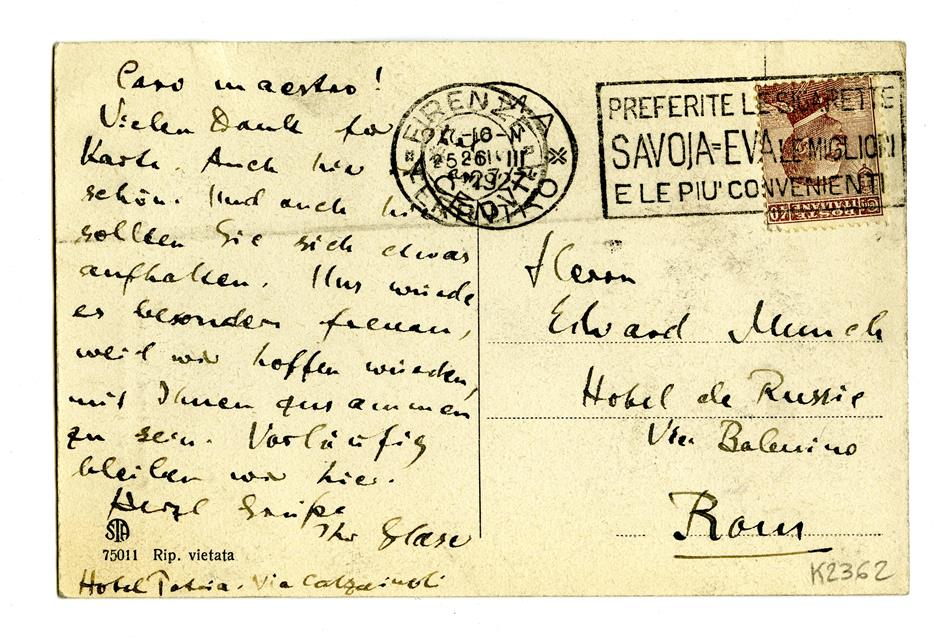 Caro maestro!
Vielen Dank für
Karte. Auch hier
schön. Und auch hier
sollten Sie sich etwas
aufhalten. Uns würde
es besonders freuen,
weil wir hoffen würden,
mit Ihnen zusammen
zu sein. Vorläufig
bleiben wir hier.
Herzl Grüße
Ihr Glaser
STA
75011 Rip. vietata
Hotel Patria. Via Calzaiuoli
FIRENZE
26 III
PREFERITE LE SIGARETTE
SAVOJA=EVA LE MIGLIORI
E LE PIU' CONVENIENTI
Herrn
Edvard Munch
Hotel de Russie
Via Babuino
Rom
K2362